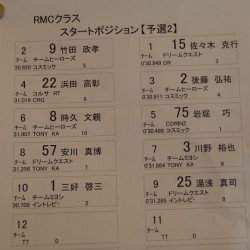 RMCクラス
スタートポジション【予選2】
2 9 竹田 政孝
チーム チームヒーローズ
コスミック
1 15 佐々木 克行
チーム ドリームクエスト
0'30.949 DR 3
4 22 浜田 高彰
チーム コルサ RT
31.019 CRG 6
3 2 後藤 弘祐
チーム チームヒーローズ
コスミック
6 8 時久 文親
チーム チームヒーローズ
TONY KA
5 75 岩堀 巧
チーム COBINZ
TONY KA
8 57 安川 真博
チーム ドリームクエスト
31.256 TONY KA
7 3 川野 裕也
チーム チームヒーローズ
10 1 三好 啓三
チーム チームミヨシ
イントレピ
9 25 湯浅 真司
チーム ドリームクエスト
イントレピ
12
チーム
TT 0
11
チーム
TT 0